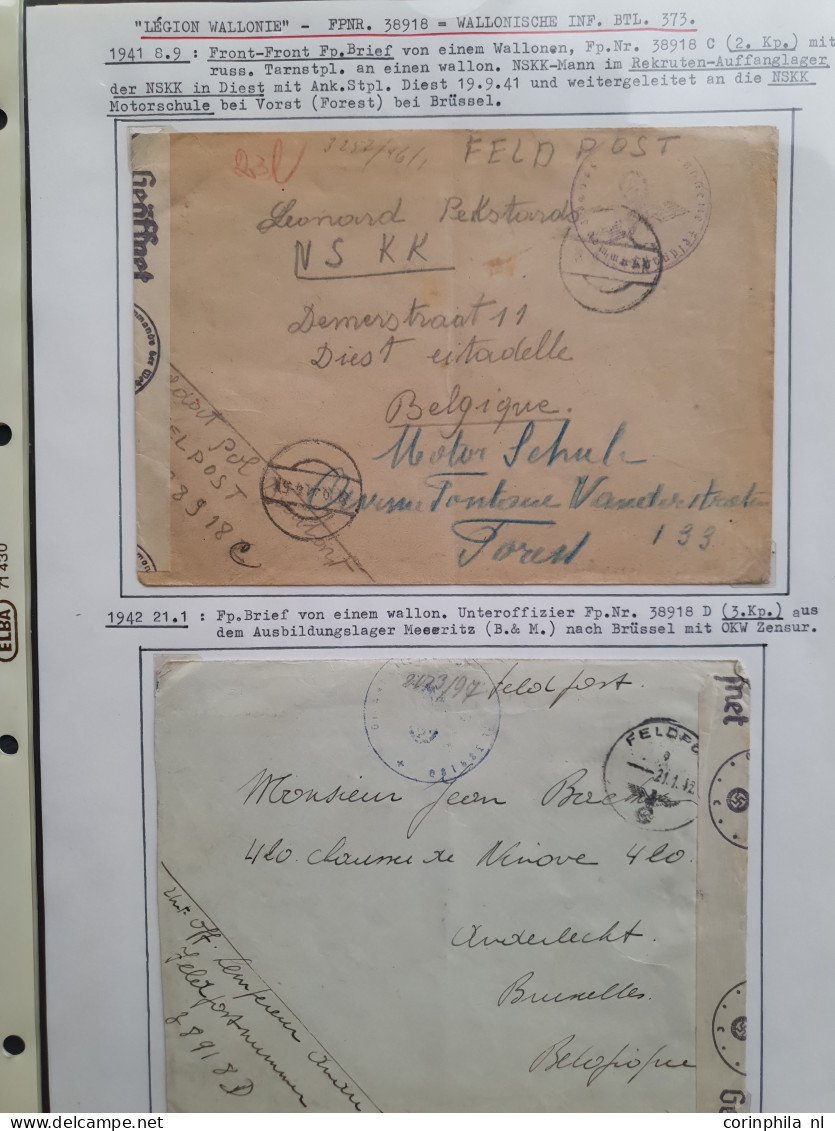 "LÉGION WALLONIE" - FPNR. 38918 = WALLONISCHE INF. BTL. 373.
1941 8.9 : Front-Front Fp.Brief von einem Wallonen, Fp.Nr. 38918 C (2. Kp.) mit
russ. Tarnstpl. an einen wallon. NSKK-Mann im Rekruten-Auffanglager
der NSKK in Diest mit Ank.Stpl. Diest 19.9.41 und weitergeleitet an die NSKK
Motorschule bei Vorst (Forest) bei Brüssel.
FELD POST
Geöffnet
Leonard
NSKK
Demerstraat 11
Diest citadelle
Belgique.
Motor Schule
Forest 133
Pol
ELPOST
8918 C
ELBA 71 430
1942 21.1 : Fp.Brief von einem wallon. Unteroffizier Fp.Nr. 38918 D (3.Kp.) aus
dem Ausbildungslager Meseritz (B.& M.) nach Brüssel mit OKW Zensur.
2173/97
Feldpost.
FELDPO
a
21.1.42
net
Monsieur Jean
420. chaussée de Ninove 420.
Anderlecht.
Bruxelles.
Belgique
Unt. Off.
Feldpostnummer
38918 D
Ge
corinphila nl